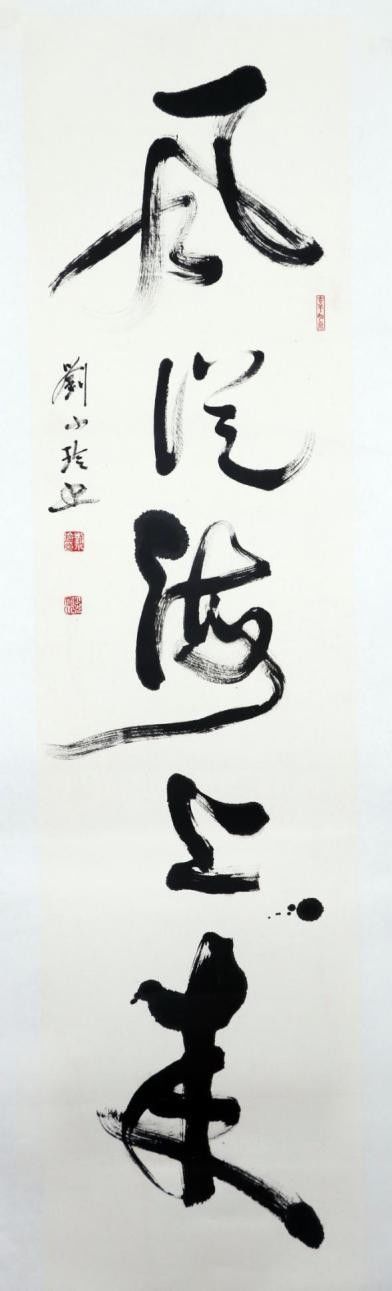 風從海上來
劉小玲書